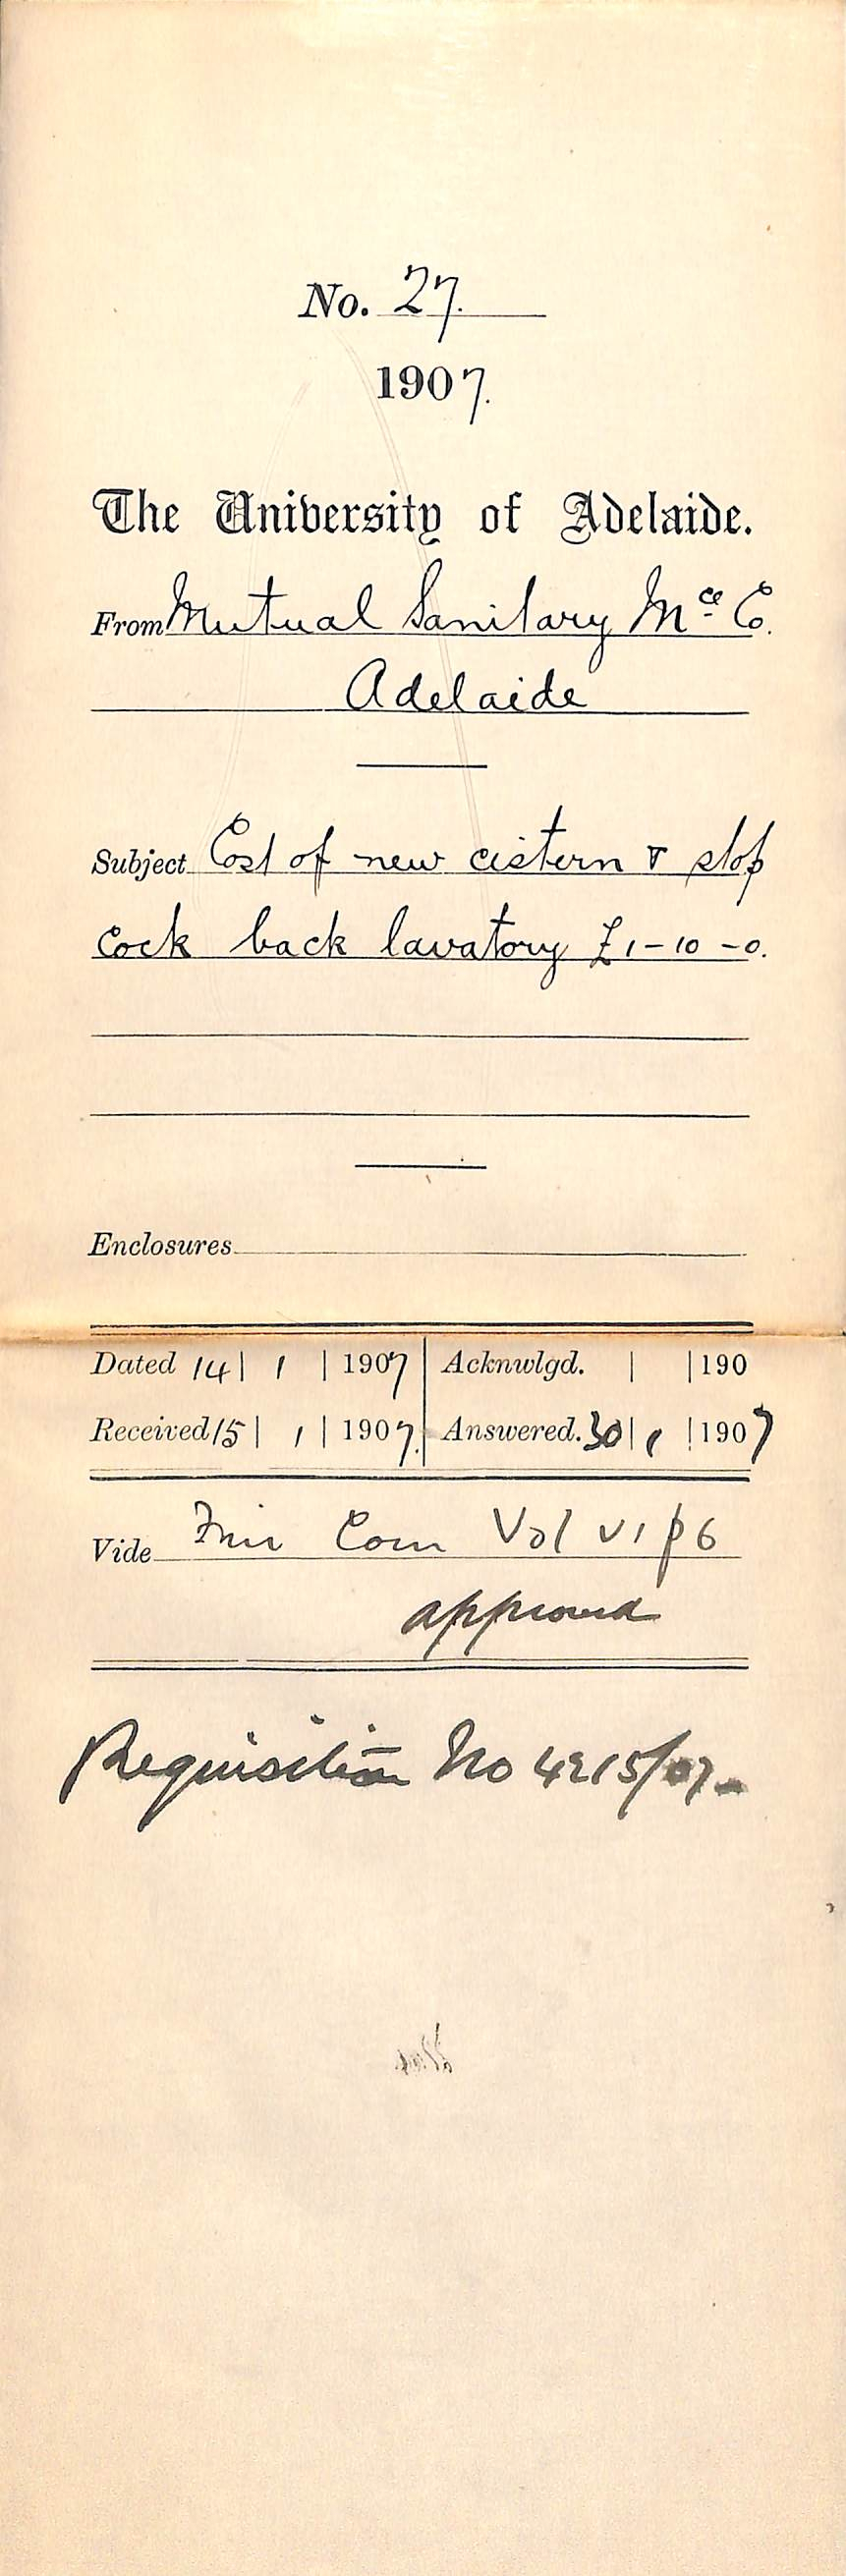 No. 27.
1907.
The University of Adelaide.
From Mutual Sanitary Mce Co.
Adelaide
Subject Cost of new cistern & stop
cock back lavatory £1-10-0.
Enclosures
Dated 14 | 1 | 1907 Acknwlgd. | | 190
Received 15 | 1 | 1907. Answered. 30 | 1 | 1907
Vide Fin Com Vol VI p6
approved
Requisition No 4215/07.